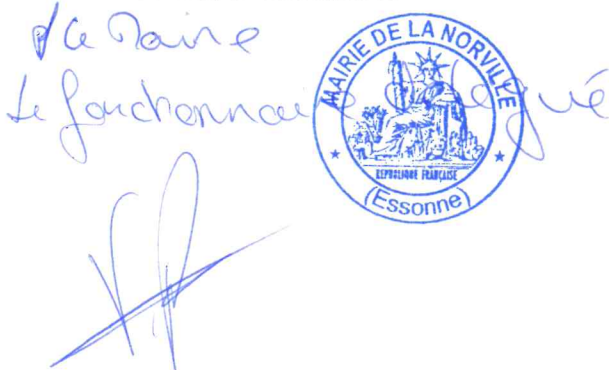 P/Le Maire
Le fonctionnaire délégué
MAIRIE DE LA NORVILLE
REPUBLIQUE FRANÇAISE
(Essonne)